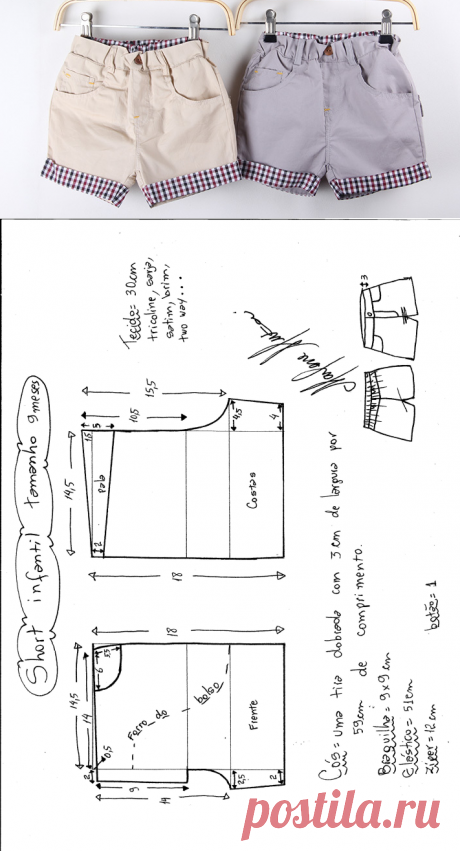 Short infantil tamanho 9 meses
Tecido= 30cm
tricoline, sarja,
satim, brim,
two way...
15,5
10,5
5
1,5
14,5
Pala
2
4,5
4
Costas
18
18
5,5
6
14,5
14
Forro do bolso
0,5
2
Frente
9
14
2,5
2
3
Cós= uma tira dobrada com 3 cm de largura por
59cm de comprimento.
Braguilha= 9x9 cm
Elástico= 51cm
Ziper= 12cm
botão= 1
postila.ru